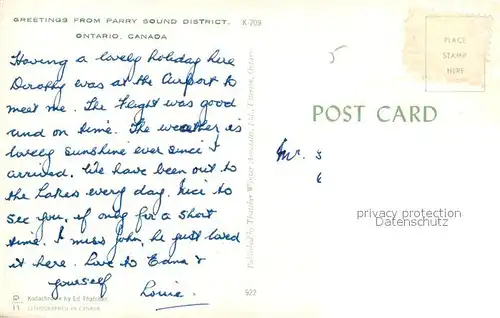 GREETINGS FROM PARRY SOUND DISTRICT,
ONTARIO, CANADA
K-709
Having a lovely holiday here
Dorothy was at the Airport to
meet me. The flight was good
and on time. The weather is
lovely sunshine ever since I
arrived. We have been out to
the Lakes every day. Nice to
see you, if only for a short
time. I miss John, he just loved
it here. Love to Edna &
yourself
Louie.
Kodachrome by Ed
LITHOGRAPHED IN CANADA
922
5
PLACE
STAMP
HERE
POST CARD
Mr. S
privacy protection
watermark